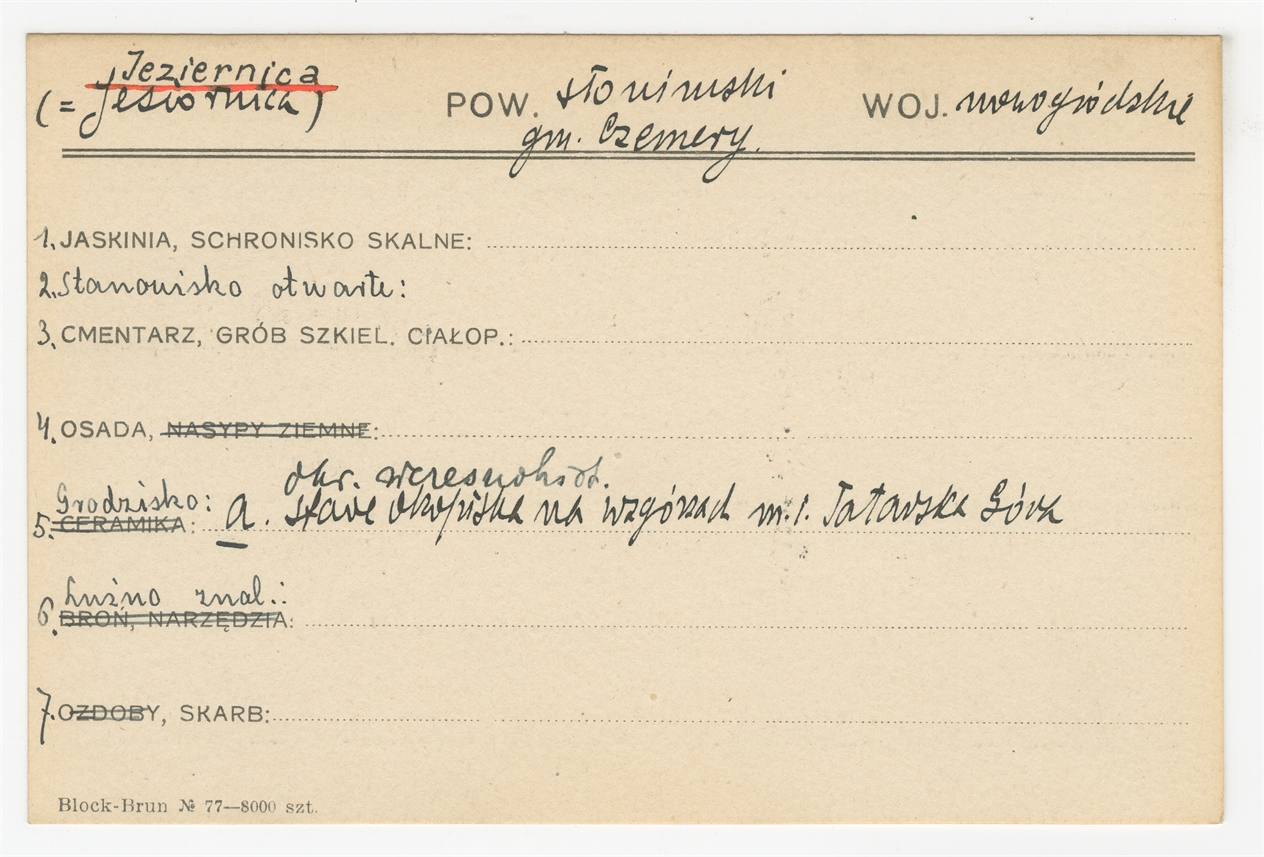 Jeziernica
(= Jesiornica) POW. słonimski WOJ. nowogródzkie
gm. Czemery.
1. JASKINIA, SCHRONISKO SKALNE:
2. Stanowisko otwarte:
3. CMENTARZ, GRÓB SZKIEL. CIAŁOP.:
4. OSADA, NASYPY ZIEMNE:
okr. wczesnohist.
Grodzisko:
5. CERAMIKA: a. stare okopiska na wzgórzach m. i. Tatarska Góra
Luźno znal.:
6. BROŃ, NARZĘDZIA:
7. OZDOBY, SKARB:
Block-Brun № 77—8000 szt.